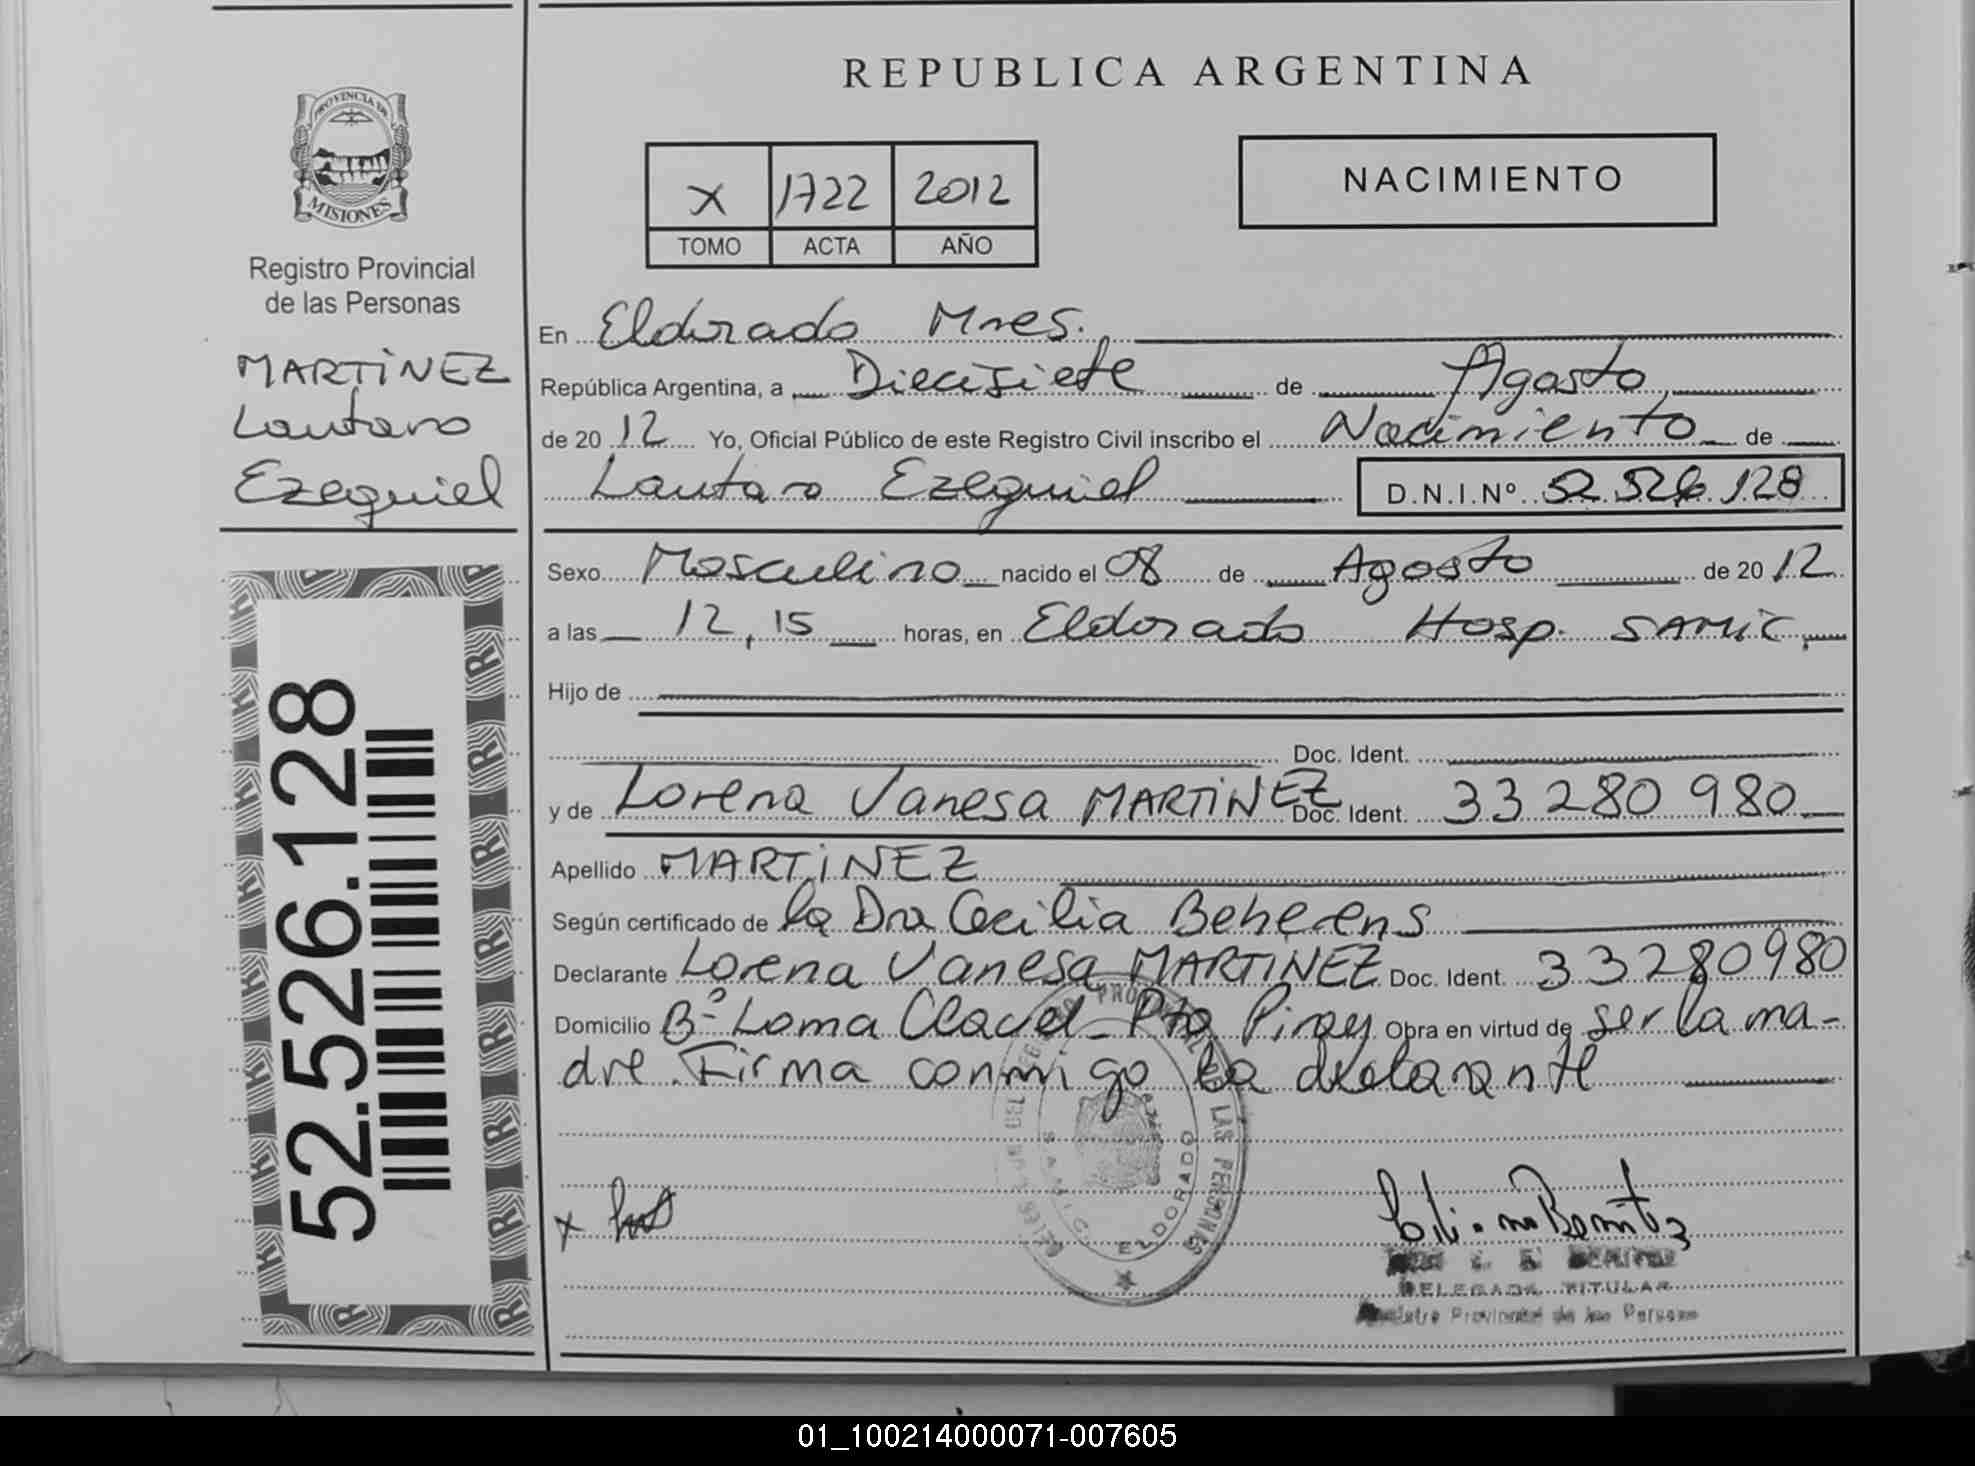 REPUBLICA ARGENTINA
PROVINCIA DE
MISIONES
Registro Provincial
de las Personas
MARTINEZ
Lautaro
Ezequiel
52.526.128
X 1722 2012
TOMO ACTA AÑO
NACIMIENTO
En Eldorado Mnes.
República Argentina, a Diecisiete de Agosto
de 20 12 Yo, Oficial Público de este Registro Civil inscribo el Nacimiento de
Lautaro Ezequiel D.N.I.Nº 52.526.128
Sexo Masculino nacido el 08 de Agosto de 20 12
a las 12,15 horas, en Eldorado Hosp. SAMIC,
Hijo de
Doc. Ident.
y de Lorena Vanesa MARTINEZ Doc. Ident. 33280980
Apellido MARTINEZ
Según certificado de la Dra Cecilia Beherens
Declarante Lorena Vanesa MARTINEZ Doc. Ident. 33280980
Domicilio Bº Loma Clavel - Pto Piray Obra en virtud de ser la ma-
dre. Firma conmigo la declarante
LAS PERSONAS
S.A.M.I.C.
ELDORADO
x
Benitez
BENITEZ
DELEGADA TITULAR
Registro Provincial de las Personas
01_100214000071-007605